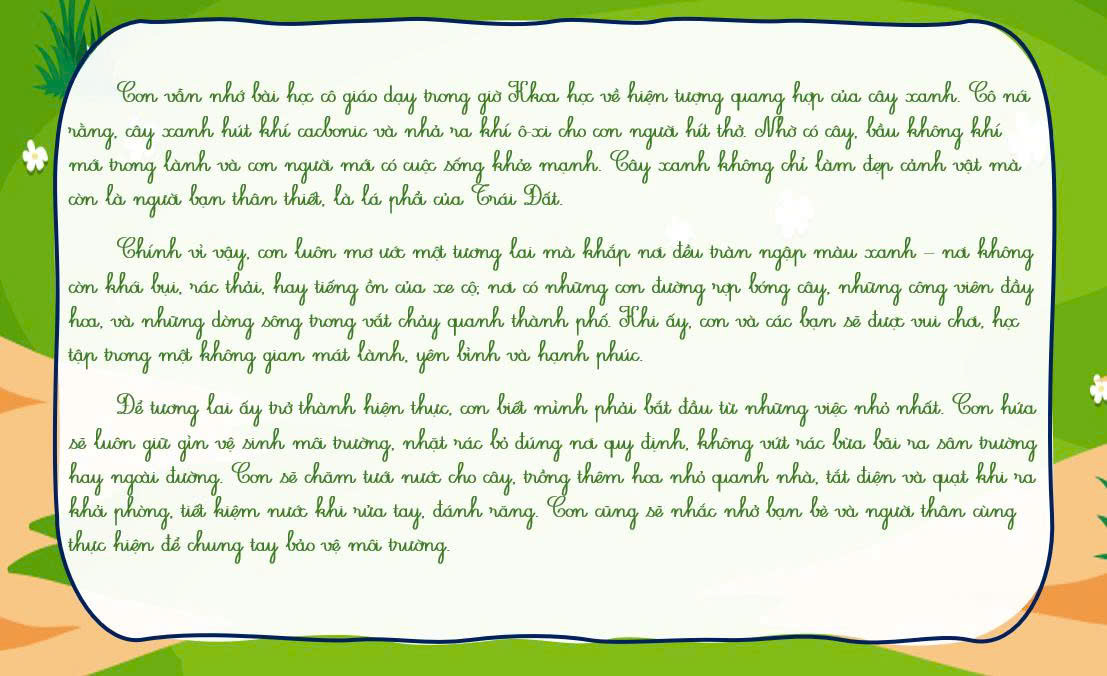 Con vẫn nhớ bài học cô giáo dạy trong giờ Khoa học về hiện tượng quang hợp của cây xanh. Cô nói
rằng, cây xanh hút khí cacbonic và nhả ra khí ô-xi cho con người hít thở. Nhờ có cây, bầu không khí
mới trong lành và con người mới có cuộc sống khỏe mạnh. Cây xanh không chỉ làm đẹp cảnh vật mà
còn là người bạn thân thiết, là lá phổi của Trái Đất.
Chính vì vậy, con luôn mơ ước một tương lai mà khắp nơi đều tràn ngập màu xanh – nơi không
còn khói bụi, rác thải, hay tiếng ồn của xe cộ; nơi có những con đường rợp bóng cây, những công viên đầy
hoa, và những dòng sông trong vắt chảy quanh thành phố. Khi ấy, con và các bạn sẽ được vui chơi, học
tập trong một không gian mát lành, yên bình và hạnh phúc.
Để tương lai ấy trở thành hiện thực, con biết mình phải bắt đầu từ những việc nhỏ nhất. Con hứa
sẽ luôn giữ gìn vệ sinh môi trường, nhặt rác bỏ đúng nơi quy định, không vứt rác bừa bãi ra sân trường
hay ngoài đường. Con sẽ chăm tưới nước cho cây, trồng thêm hoa nhỏ quanh nhà, tắt điện và quạt khi ra
khỏi phòng, tiết kiệm nước khi rửa tay, đánh răng. Con cũng sẽ nhắc nhở bạn bè và người thân cùng
thực hiện để chung tay bảo vệ môi trường.